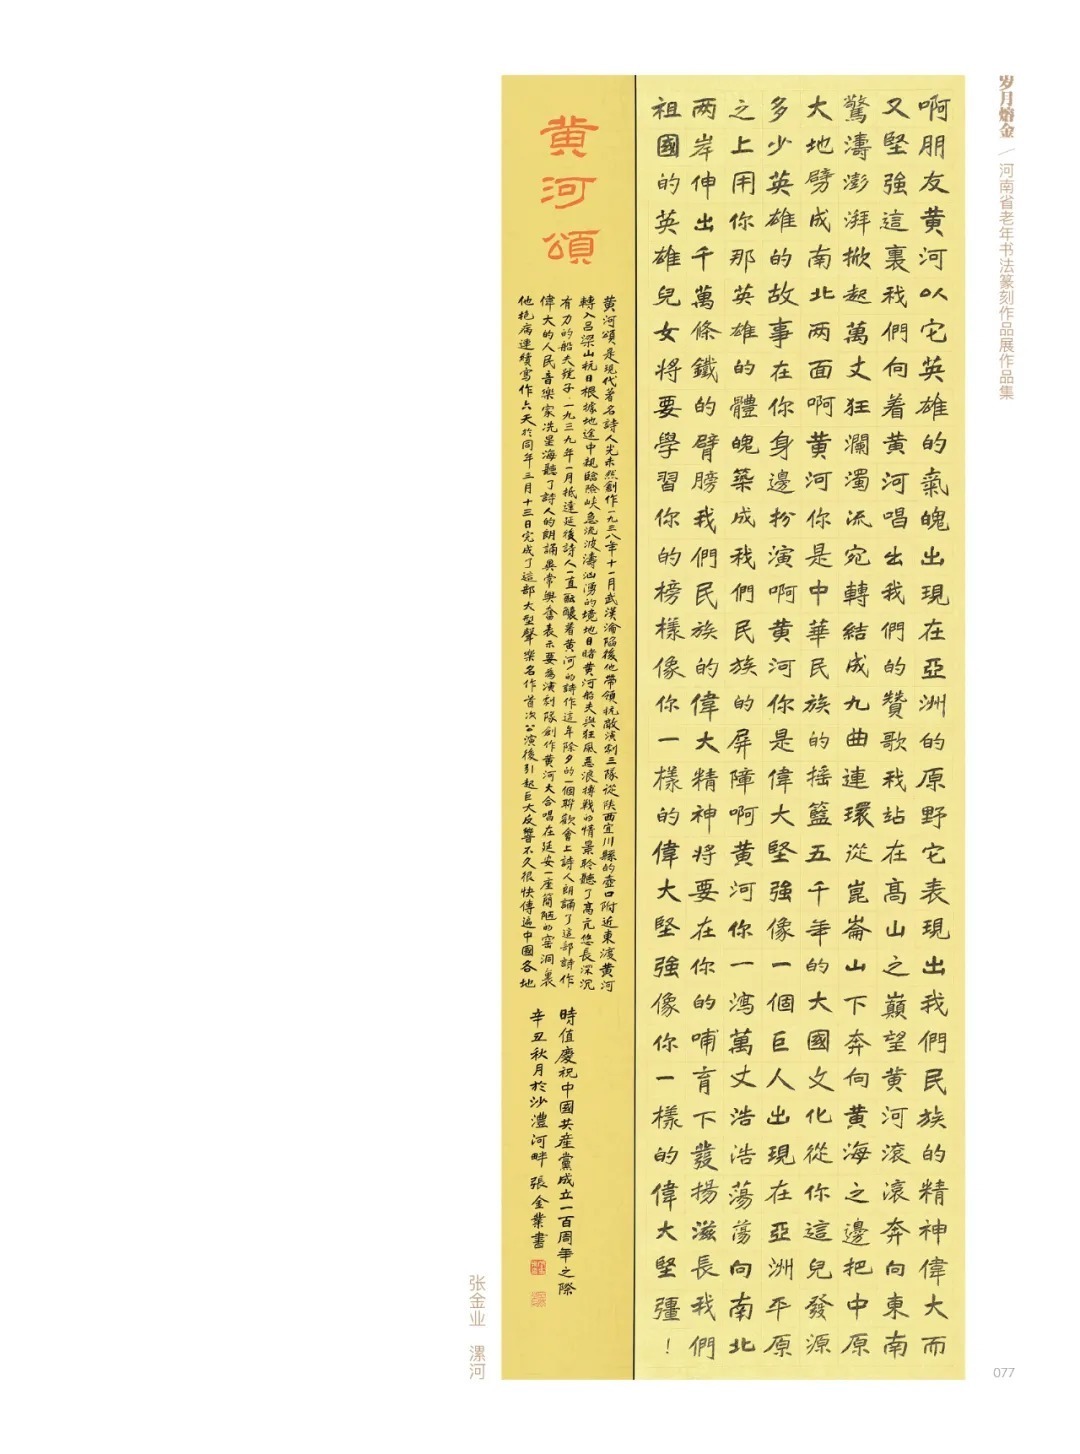 岁月熔金／河南省老年书法篆刻作品展作品集
啊朋友黄河以它英雄的氣魄出現在亞洲的原野它表現出我們民族的精神偉大而
又堅強這裏我們向着黄河唱出我們的贊歌我站在高山之巔望黄河滚滚奔向東南
驚濤澎湃掀起萬丈狂瀾濁流宛轉結成九曲連環從崑崙山下奔向黄海之邊把中原
大地劈成南北两面啊黄河你是中華民族的摇籃五千年的大國文化從你這兒發源
多少英雄的故事在你身邊扮演啊黄河你是偉大堅強像一個巨人出現在亞洲平原
之上用你那英雄的體魄築成我們民族的屏障啊黄河你一瀉萬丈浩浩蕩蕩向南北
两岸伸出千萬條鐵的臂膀我們民族的偉大精神将要在你的哺育下發揚滋長我們
祖國的英雄兒女将要學習你的榜樣像你一樣的偉大堅強像你一樣的偉大堅彊！
黄河頌
黄河頌是現代著名詩人光未然創作一九三八年十一月武漢淪陷後他帶領抗敵演劇三隊從陝西宜川縣的壺口附近東渡黄河
轉入吕梁山抗日根據地途中親臨險峡急流波濤汹湧的境地目睹黄河船夫與狂風惡浪搏戰的情景聆聽了高亢悠長深沉
有力的船夫號子一九三九年一月抵達延後詩人一直醖釀着黄河的詩作這年除夕的一個聯歡會上詩人朗誦了這部詩作
偉大的人民音樂家冼星海聽了詩人的朗誦異常興奮表示要為演劇隊創作黄河大合唱在延安一座簡陋的窑洞裏
他抱病連續寫作六天於同年三月十三日完成了這部大型聲樂名作首次公演後引起巨大反響不久很快傳遍中國各地
時值慶祝中國共産黨成立一百周年之際
辛丑秋月於沙澧河畔張金業書
张金业 漯河
077